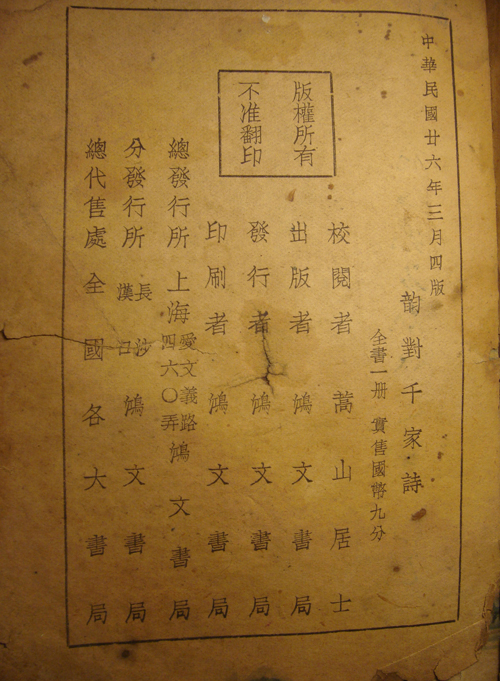 中華民國廿六年三月四版
韵對千家·詩
全書一册 實售國幣九分
版權所有
不准翻印
校閱者 蒿山居士
出版者 鴻文書局
發行者 鴻文書局
印刷者 鴻文書局
總發行所 上海愛文義路四六〇弄 鴻文書局
分發行所 長沙 漢口 鴻文書局
總代售處 全國各大書局